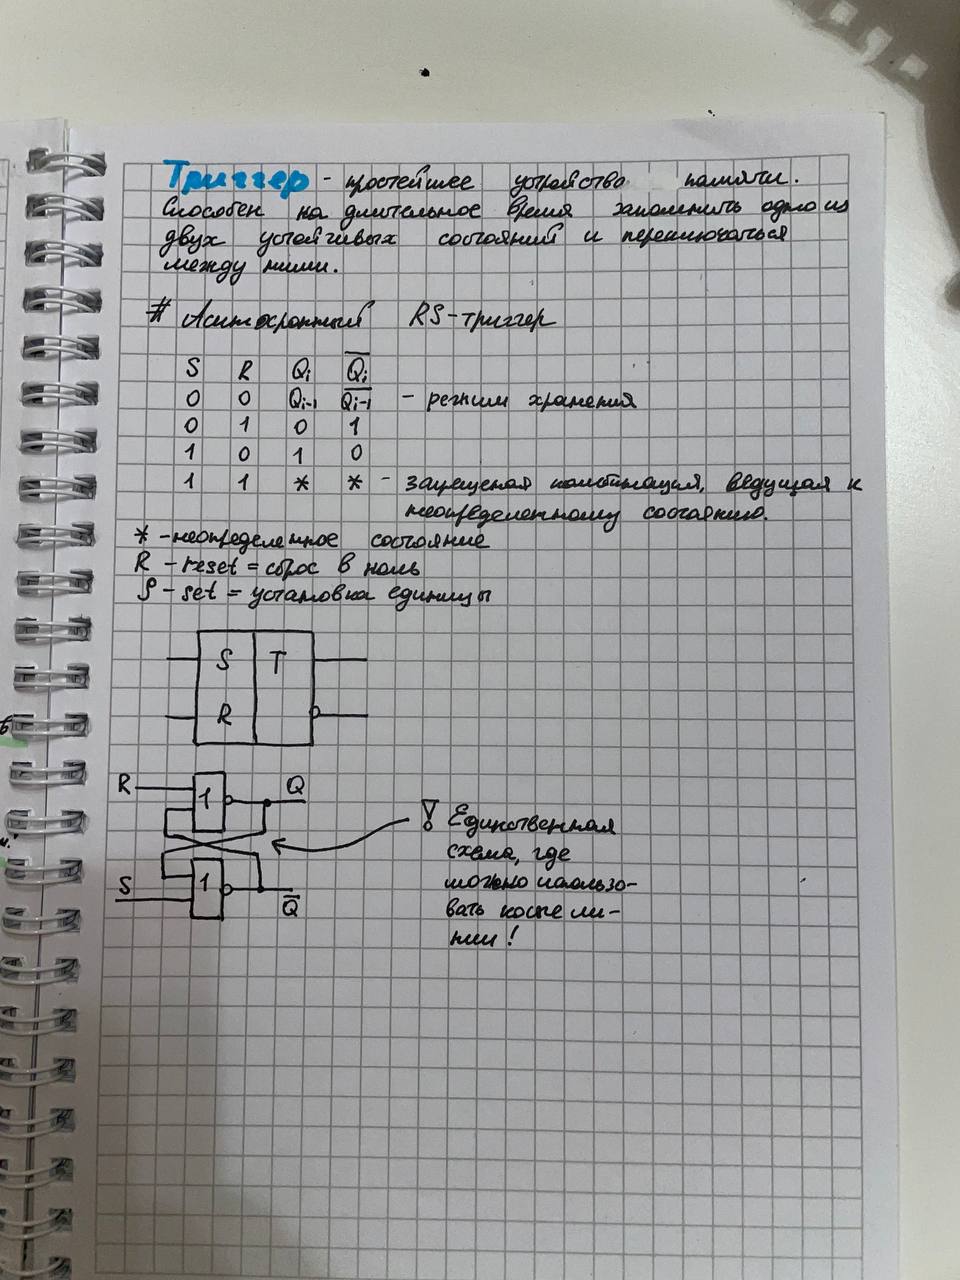 Триггер - простейшее устройство памяти.
Способен на длительное время запомнить одно из
двух устойчивых состояний и переключаться
между ними.
# Асинхронный RS-триггер
S R Qi Q̅i̅
0 0 Qi-1 Q̅i̅-̅1̅ - режим хранения
0 1 0 1
1 0 1 0
1 1 * * - запрещеная комбинация, ведущая к
неопределенному состоянию.
* - неопределенное состояние
R - reset = сброс в ноль
S - set = установка единицы
S T
R
R 1 Q
! Единственная
схема, где
можно использо-
вать косые ли-
нии!
S 1 Q̅